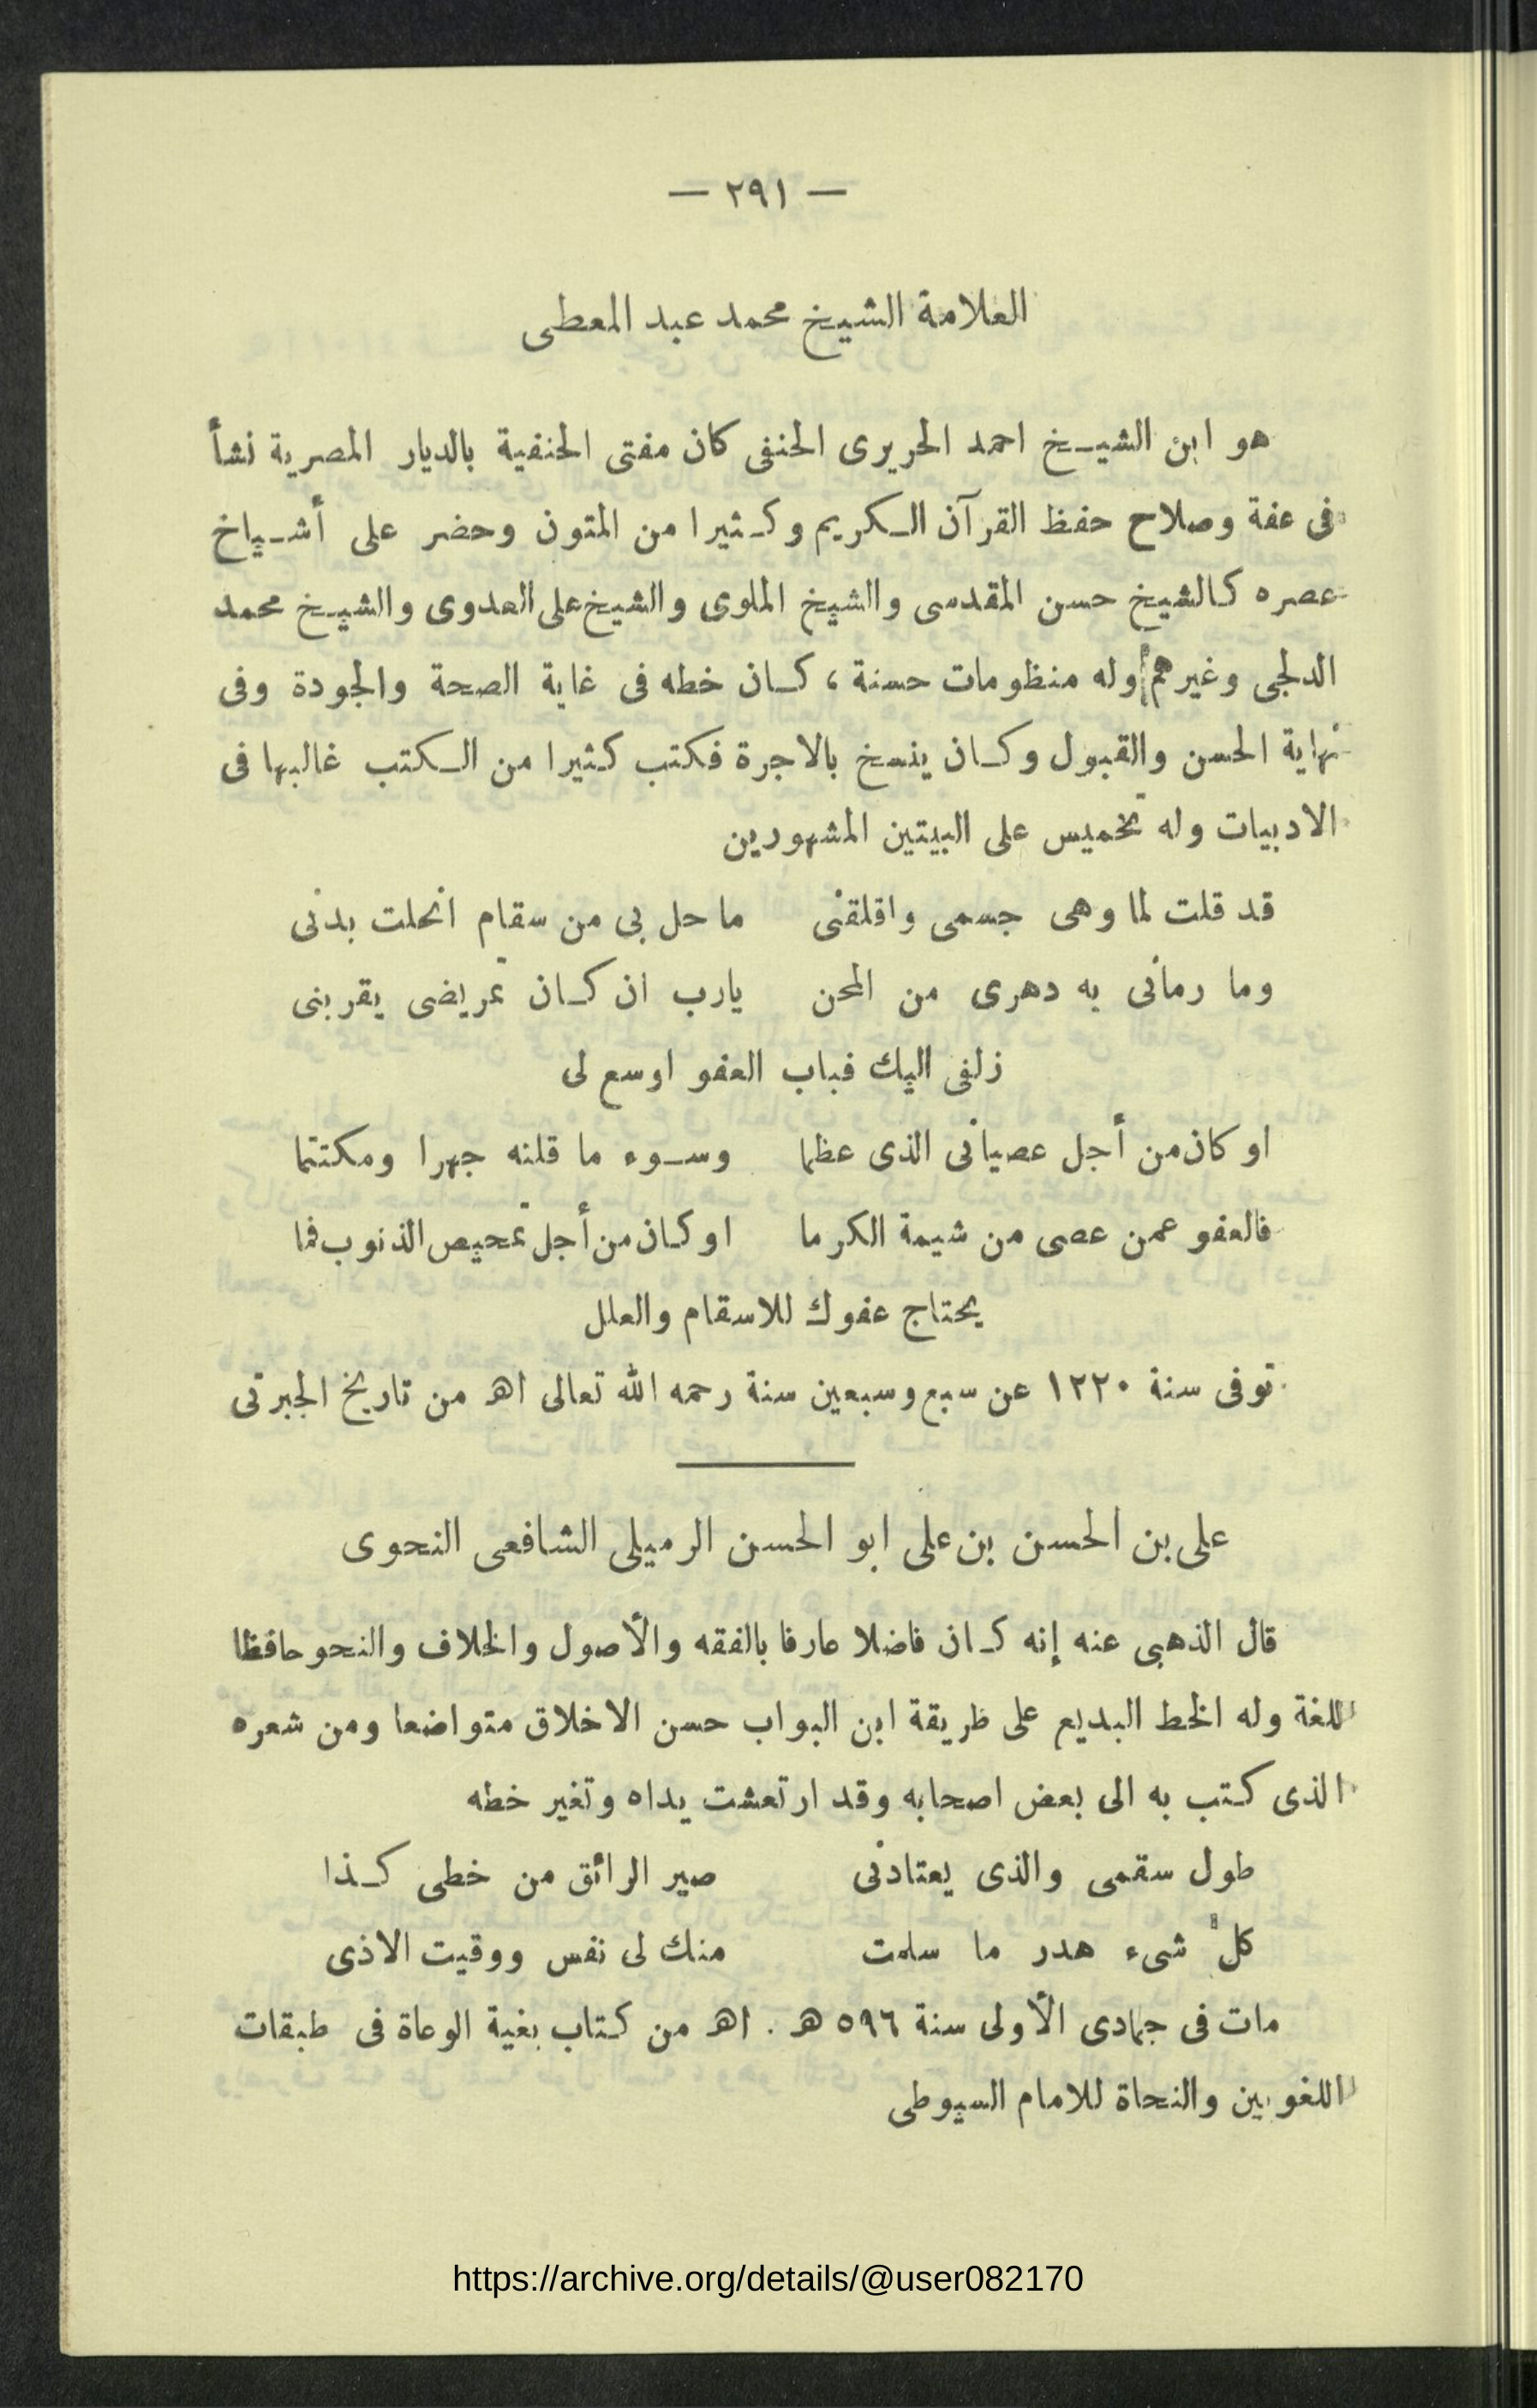 — ٢٩١ —
العلامة الشيخ محمد عبد المعطى
هو ابن الشيخ احمد الحريرى الحنفى كان مفتى الحنفية بالديار المصرية نشأ
فى عفة وصلاح حفظ القرآن الكريم وكثيرا من المتون وحضر على أشياخ
عصره كالشيخ حسن المقدسى والشيخ الملوى والشيخ على العدوى والشيخ محمد
الدلجى وغيرهم وله منظومات حسنة ، كان خطه فى غاية الصحة والجودة وفى
نهاية الحسن والقبول وكان ينسخ بالاجرة فكتب كثيرا من الكتب غالبها فى
الادبيات وله تخميس على البيتين المشهورين
قد قلت لما وهى جسمى واقلقنى ما حل بى من سقام انحلت بدنى
وما رمانى به دهرى من المحن يارب ان كان تمريضى يقربنى
زلفى اليك فباب العفو اوسع لى
او كان من أجل عصيانى الذى عظما وسوء ما قلنه جهرا ومكتتما
فالعفو عمن عصى من شيمة الكرما او كان من أجل تمحيص الذنوب فما
يحتاج عفوك للاسقام والعلل
توفى سنة ١٢٢٠ عن سبع وسبعين سنة رحمه الله تعالى اهـ من تاريخ الجبرتى
على بن الحسن بن على ابو الحسن الرميلى الشافعى النحوى
قال الذهبى عنه إنه كان فاضلا عارفا بالفقه والأصول والخلاف والنحو حافظا
للغة وله الخط البديع على طريقة ابن البواب حسن الاخلاق متواضعا ومن شعره
الذى كتب به الى بعض اصحابه وقد ارتعشت يداه وتغير خطه
طول سقمى والذى يعتادنى صير الرائق من خطى كذا
كل شىء هدر ما سلمت منك لى نفس ووقيت الاذى
مات فى جمادى الأولى سنة ٥٩٦ هـ . اهـ من كتاب بغية الوعاة فى طبقات
اللغويين والنحاة للامام السيوطى
https://archive.org/details/@user082170